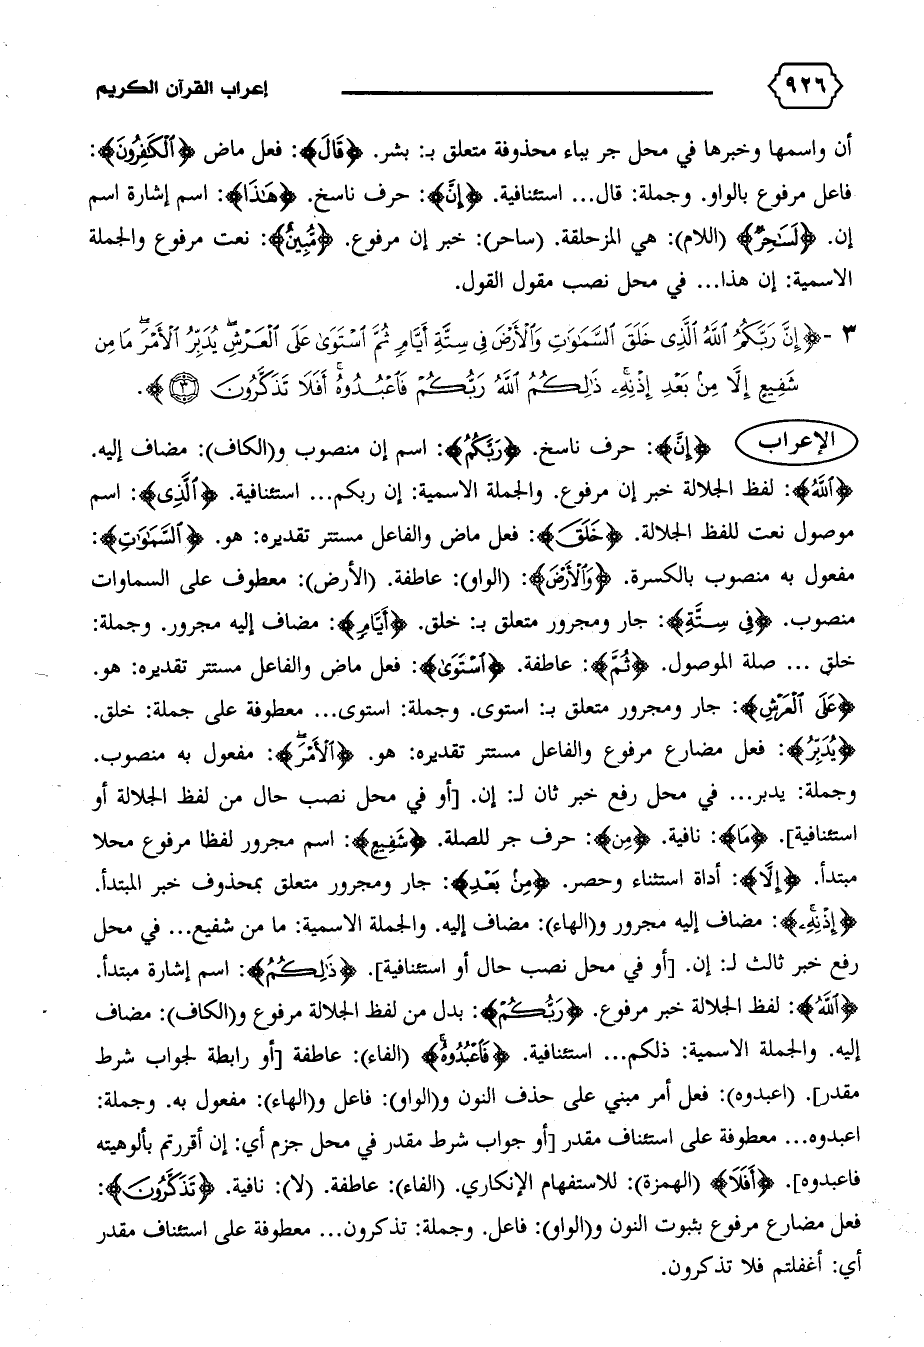 ٩٢٦ إعراب القرآن الكريم
أن واسمها وخبرها في محل جر بباء محذوفة متعلق بـ: بشر. ﴿قَالَ﴾: فعل ماض ﴿ٱلْكَٰفِرُونَ﴾:
فاعل مرفوع بالواو. وجملة: قال... استئنافية. ﴿إِنَّ﴾: حرف ناسخ. ﴿هَٰذَا﴾: اسم إشارة اسم
إن. ﴿لَسَٰحِرٌ﴾ (اللام): هي المزحلقة. (ساحر): خبر إن مرفوع. ﴿مُّبِينٌ﴾: نعت مرفوع والجملة
الاسمية: إن هذا... في محل نصب مقول القول.
٣ - ﴿إِنَّ رَبَّكُمُ ٱللَّهُ ٱلَّذِى خَلَقَ ٱلسَّمَٰوَٰتِ وَٱلْأَرْضَ فِى سِتَّةِ أَيَّامٍ ثُمَّ ٱسْتَوَىٰ عَلَى ٱلْعَرْشِ ۖ يُدَبِّرُ ٱلْأَمْرَ ۖ مَا مِن
شَفِيعٍ إِلَّا مِنۢ بَعْدِ إِذْنِهِۦ ۚ ذَٰلِكُمُ ٱللَّهُ رَبُّكُمْ فَٱعْبُدُوهُ ۚ أَفَلَا تَذَكَّرُونَ ٣﴾.
الإعراب ﴿إِنَّ﴾: حرف ناسخ. ﴿رَبَّكُمُ﴾: اسم إن منصوب و(الكاف): مضاف إليه.
﴿ٱللَّهُ﴾: لفظ الجلالة خبر إن مرفوع. والجملة الاسمية: إن ربكم... استئنافية. ﴿ٱلَّذِى﴾: اسم
موصول نعت للفظ الجلالة. ﴿خَلَقَ﴾: فعل ماض والفاعل مستتر تقديره: هو. ﴿ٱلسَّمَٰوَٰتِ﴾:
مفعول به منصوب بالكسرة. ﴿وَٱلْأَرْضَ﴾: (الواو): عاطفة. (الأرض): معطوف على السماوات
منصوب. ﴿فِى سِتَّةِ﴾: جار ومجرور متعلق بـ: خلق. ﴿أَيَّامٍ﴾: مضاف إليه مجرور. وجملة:
خلق ... صلة الموصول. ﴿ثُمَّ﴾: عاطفة. ﴿ٱسْتَوَىٰ﴾: فعل ماض والفاعل مستتر تقديره: هو.
﴿عَلَى ٱلْعَرْشِ﴾: جار ومجرور متعلق بـ: استوى. وجملة: استوى... معطوفة على جملة: خلق.
﴿يُدَبِّرُ﴾: فعل مضارع مرفوع والفاعل مستتر تقديره: هو. ﴿ٱلْأَمْرَ ۖ﴾: مفعول به منصوب.
وجملة: يدبر... في محل رفع خبر ثان لـ: إن. [أو في محل نصب حال من لفظ الجلالة أو
استئنافية]. ﴿مَا﴾: نافية. ﴿مِن﴾: حرف جر للصلة. ﴿شَفِيعٍ﴾: اسم مجرور لفظا مرفوع محلا
مبتدأ. ﴿إِلَّا﴾: أداة استثناء وحصر. ﴿مِنۢ بَعْدِ﴾: جار ومجرور متعلق بمحذوف خبر المبتدأ.
﴿إِذْنِهِۦ ۚ﴾: مضاف إليه مجرور و(الهاء): مضاف إليه. والجملة الاسمية: ما من شفيع... في محل
رفع خبر ثالث لـ: إن. [أو في محل نصب حال أو استئنافية]. ﴿ذَٰلِكُمُ﴾: اسم إشارة مبتدأ.
﴿ٱللَّهُ﴾: لفظ الجلالة خبر مرفوع. ﴿رَبُّكُمْ﴾: بدل من لفظ الجلالة مرفوع و(الكاف): مضاف
إليه. والجملة الاسمية: ذلكم... استئنافية. ﴿فَٱعْبُدُوهُ ۚ﴾ (الفاء): عاطفة [أو رابطة لجواب شرط
مقدر]. (اعبدوه): فعل أمر مبني على حذف النون و(الواو): فاعل و(الهاء): مفعول به. وجملة:
اعبدوه... معطوفة على استئناف مقدر [أو جواب شرط مقدر في محل جزم أي: إن أقررتم بألوهيته
فاعبدوه]. ﴿أَفَلَا﴾ (الهمزة): للاستفهام الإنكاري. (الفاء): عاطفة. (لا): نافية. ﴿تَذَكَّرُونَ﴾:
فعل مضارع مرفوع بثبوت النون و(الواو): فاعل. وجملة: تذكرون... معطوفة على استئناف مقدر
أي: أغفلتم فلا تذكرون.